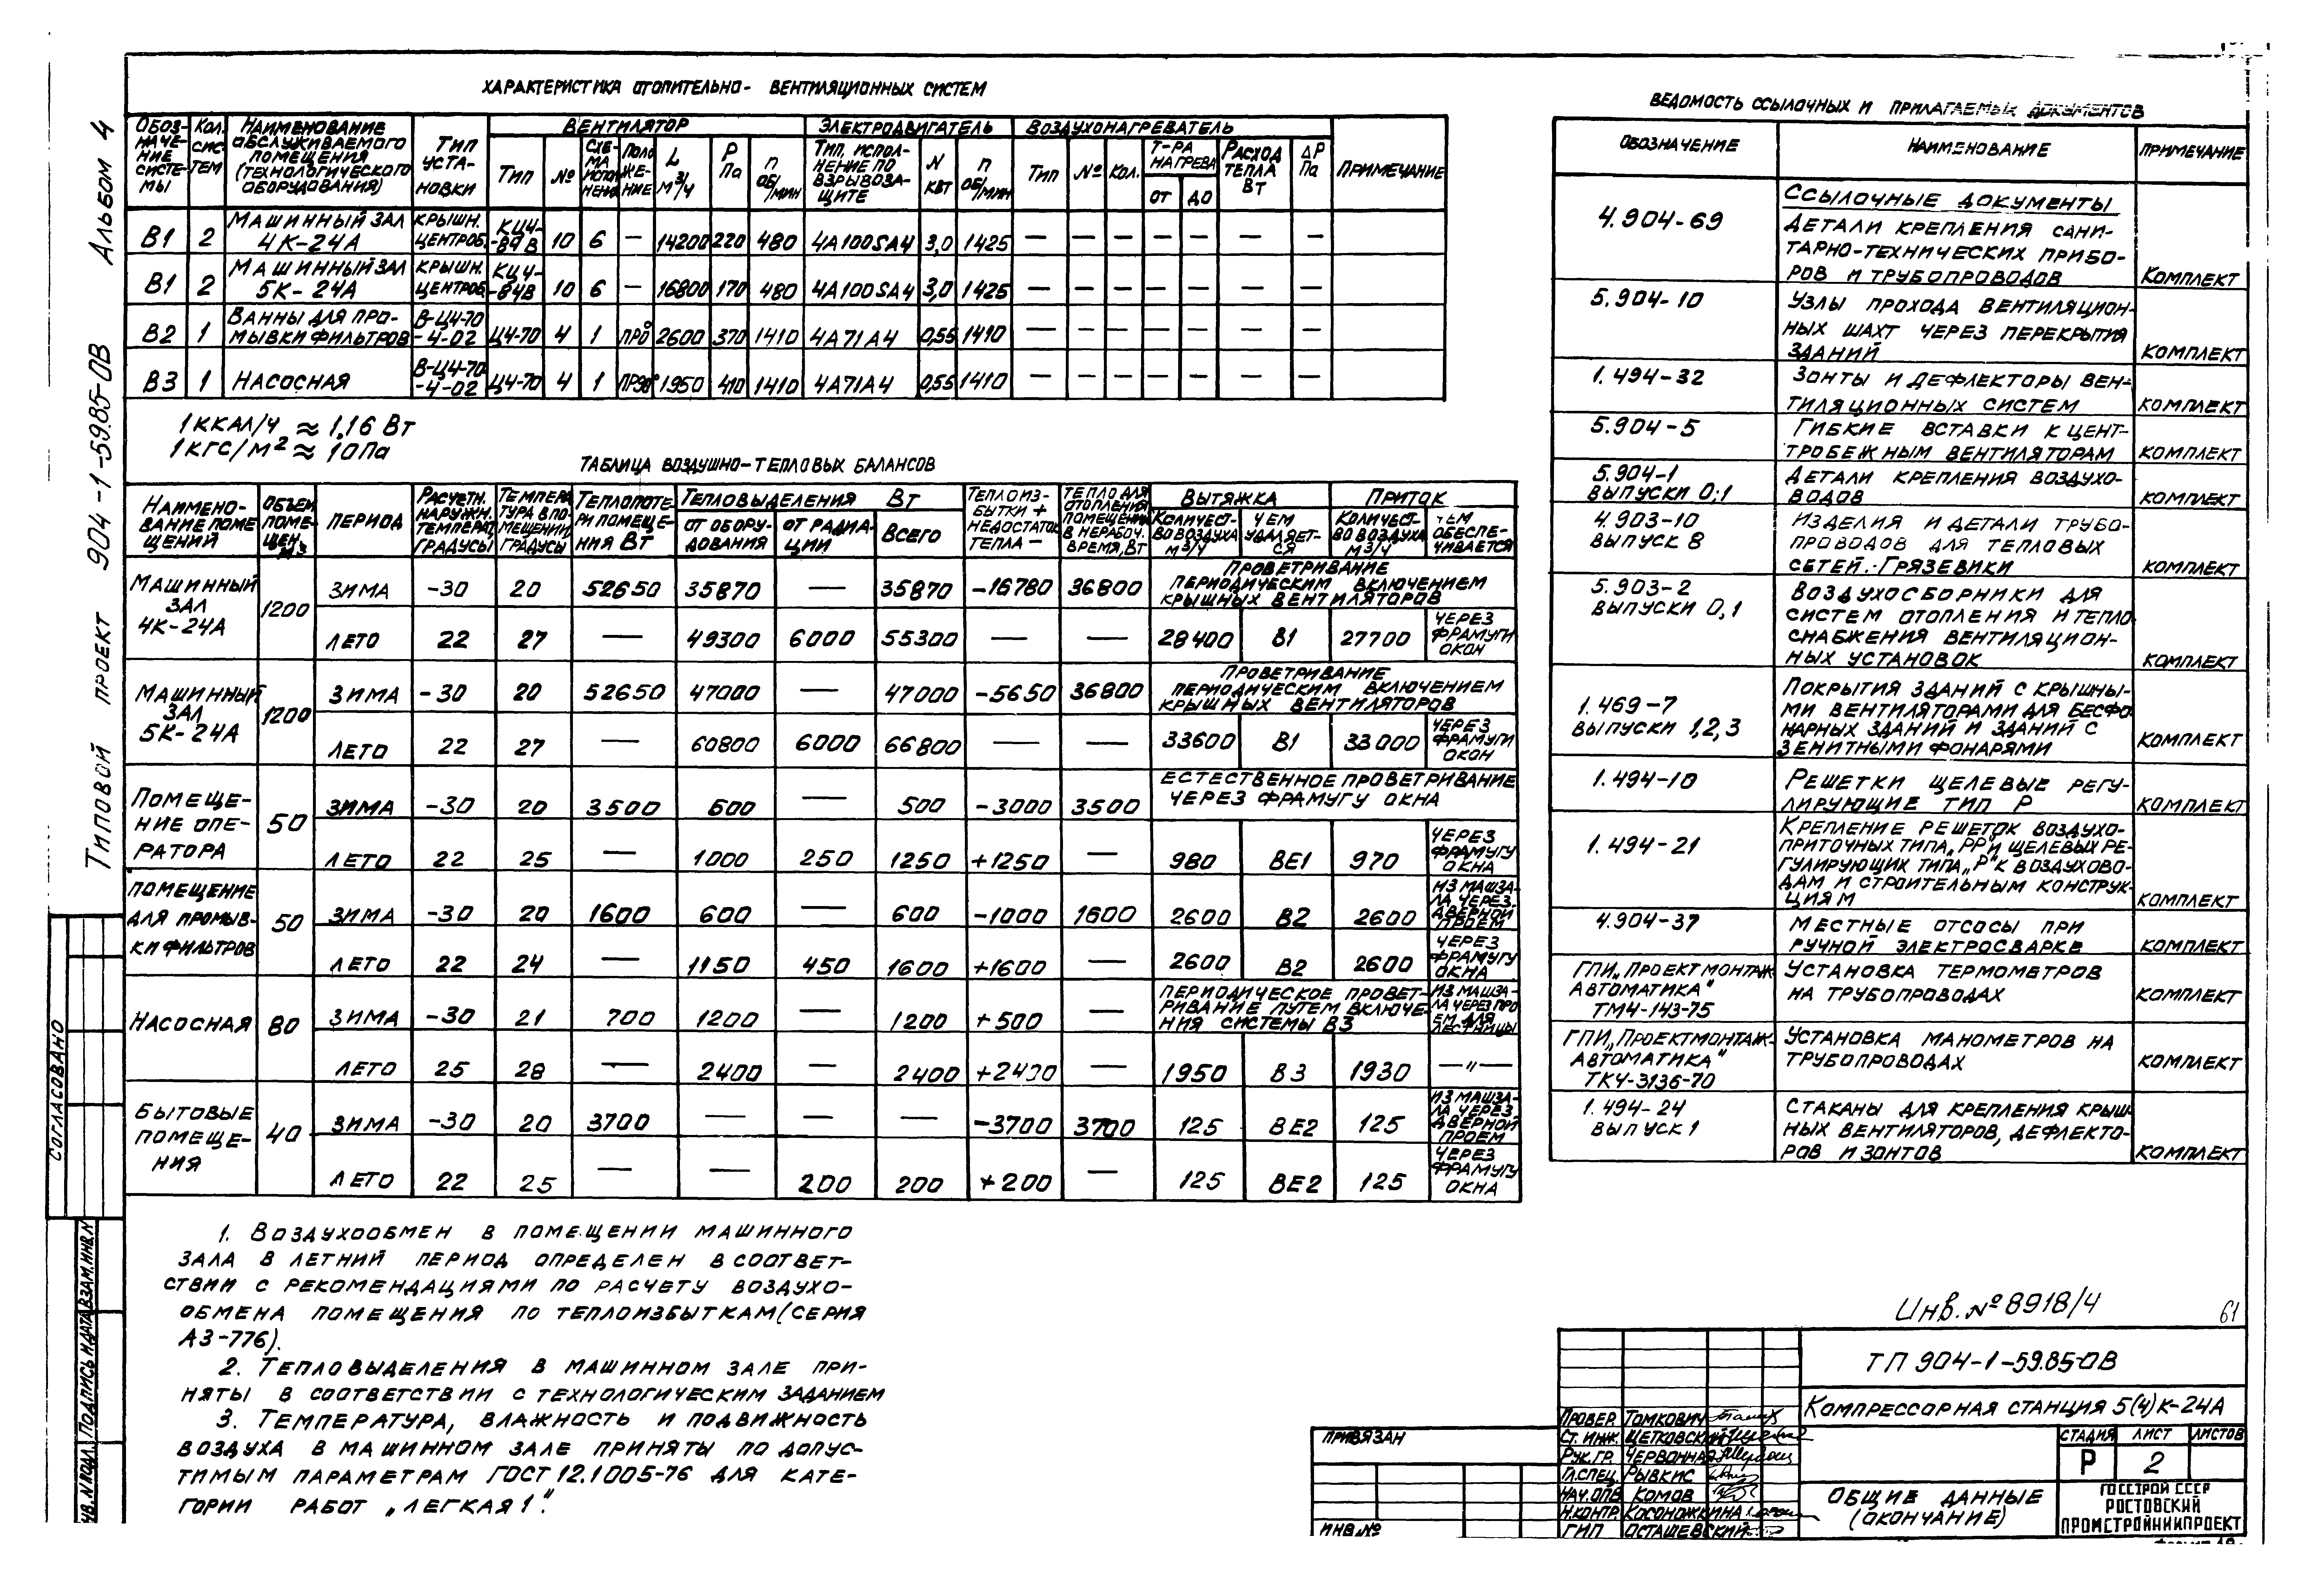 Альбом 4
Типовой проект 904-1-59.85-ОВ
Характеристика отопительно-вентиляционных систем
Обозначение системы | Кол. систем | Наименование обслуживаемого помещения (технологического оборудования) | Тип установки | Вентилятор | Электродвигатель | Воздухонагреватель | Примечание
Тип | № | Схема исполнения | Положение | L м3/ч | Р Па | n об/мин | Тип, исполнение по взрывозащите | N кВт | n об/мин | Тип | № | Кол. | Т-ра нагрева от до | Расход тепла Вт | ΔР Па
В1 | 2 | Машинный зал 4К-24А | Крышн. центроб. | КЦ4-84В | 10 | 6 | — | 14200 | 220 | 480 | 4А100SА4 | 3,0 | 1425 | — | — | — | — | — | — | —
В1 | 2 | Машинный зал 5К-24А | Крышн. центроб. | КЦ4-84В | 10 | 6 | — | 16800 | 170 | 480 | 4А100SА4 | 3,0 | 1425 | — | — | — | — | — | — | —
В2 | 1 | Ванны для промывки фильтров | В-Ц4-70-4-02 | Ц4-70 | 4 | 1 | Пр0° | 2600 | 370 | 1410 | 4А71А4 | 0,55 | 1410 | — | — | — | — | — | — | —
В3 | 1 | Насосная | В-Ц4-70-4-02 | Ц4-70 | 4 | 1 | Пр90° | 1950 | 410 | 1410 | 4А71А4 | 0,55 | 1410 | — | — | — | — | — | — | —
1 ккал/ч ≈ 1,16 Вт
1 кгс/м2 ≈ 10 Па
Таблица воздушно-тепловых балансов
Наименование помещений | Объем помещен. м3 | Период | Расчетн. наружн. температ, градусы | Температура в помещении, градусы | Теплопотери помещения Вт | Тепловыделения Вт | Теплоизбытки + недостаток тепла — | Тепло для отопления помещения в нерабоч. время, Вт | Вытяжка | Приток
от оборудования | от радиации | Всего | Количество воздуха м3/ч | Чем удаляется | Количество воздуха м3/ч | Чем обеспечивается
Машинный зал 4К-24А | 1200 | Зима | -30 | 20 | 52650 | 35870 | — | 35870 | -16780 | 36800 | Проветривание периодическим включением крышных вентиляторов
Лето | 22 | 27 | — | 49300 | 6000 | 55300 | — | — | 28400 | В1 | 27700 | Через фрамуги окон
Машинный зал 5К-24А | 1200 | Зима | -30 | 20 | 52650 | 47000 | — | 47000 | -5650 | 36800 | Проветривание периодическим включением крышных вентиляторов
Лето | 22 | 27 | — | 60800 | 6000 | 66800 | — | — | 33600 | В1 | 33000 | Через фрамуги окон
Помещение оператора | 50 | Зима | -30 | 20 | 3500 | 600 | — | 500 | -3000 | 3500 | Естественное проветривание через фрамугу окна
Лето | 22 | 25 | — | 1000 | 250 | 1250 | +1250 | — | 980 | ВЕ1 | 970 | Через фрамугу окна
Помещение для промывки фильтров | 50 | Зима | -30 | 20 | 1600 | 600 | — | 600 | -1000 | 1600 | 2600 | В2 | 2600 | Из машзала через дверной проем
Лето | 22 | 24 | — | 1150 | 450 | 1600 | +1600 | — | 2600 | В2 | 2600 | Через фрамугу окна
Насосная | 80 | Зима | -30 | 21 | 700 | 1200 | — | 1200 | +500 | — | Периодическое проветривание путем включения системы В3 | Из машзала через проем для лестницы
Лето | 25 | 28 | — | 2400 | — | 2400 | +2400 | — | 1950 | В3 | 1930 | —"—
Бытовые помещения | 40 | Зима | -30 | 20 | 3700 | — | — | — | -3700 | 3700 | 125 | ВЕ2 | 125 | Из машзала через дверной проем
Лето | 22 | 25 | — | — | 200 | 200 | +200 | — | 125 | ВЕ2 | 125 | Через фрамугу окна
1. Воздухообмен в помещении машинного
зала в летний период определен в соответ-
ствии с рекомендациями по расчету воздухо-
обмена помещения по теплоизбыткам (серия
А3-776).
2. Тепловыделения в машинном зале при-
няты в соответствии с технологическим заданием
3. Температура, влажность и подвижность
воздуха в машинном зале приняты по допус-
тимым параметрам ГОСТ 12.1005-76 для кате-
гории работ „Легкая 1".
Ведомость ссылочных и прилагаемых документов
Обозначение | Наименование | Примечание
Ссылочные документы
4.904-69 | Детали крепления санитарно-технических приборов и трубопроводов | Комплект
5.904-10 | Узлы прохода вентиляционных шахт через перекрытия зданий | Комплект
1.494-32 | Зонты и дефлекторы вентиляционных систем | Комплект
5.904-5 | Гибкие вставки к центробежным вентиляторам | Комплект
5.904-1 Выпуски 0;1 | Детали крепления воздуховодов | Комплект
4.903-10 Выпуск 8 | Изделия и детали трубопроводов для тепловых сетей. Грязевики | Комплект
5.903-2 Выпуски 0,1 | Воздухосборники для систем отопления и теплоснабжения вентиляционных установок | Комплект
1.469-7 Выпуски 1,2,3 | Покрытия зданий с крышными вентиляторами для бесфонарных зданий и зданий с зенитными фонарями | Комплект
1.494-10 | Решетки щелевые регулирующие тип Р | Комплект
1.494-21 | Крепление решеток воздухоприточных типа „РР" и щелевых регулирующих типа „Р" к воздуховодам и строительным конструкциям | Комплект
4.904-37 | Местные отсосы при ручной электросварке | Комплект
ГПИ „Проектмонтажавтоматика" ТМ4-143-75 | Установка термометров на трубопроводах | Комплект
ГПИ „Проектмонтажавтоматика" ТК4-3136-70 | Установка манометров на трубопроводах | Комплект
1.494-24 Выпуск 1 | Стаканы для крепления крышных вентиляторов, дефлекторов и зонтов | Комплект
Инв. № 8918/4
61
ТП 904-1-59.85-ОВ
Компрессорная станция 5(4)К-24А
Провер. Томкович
Ст. инж. Щетковский
Рук. гр. Червонная
Гл. спец. Рывкис
Нач. ОПВ Комов
Н. контр. Косоножкина
ГИП Осташевский
Стадия | Лист | Листов
Р | 2
Общие данные
(окончание)
Госстрой СССР
Ростовский
Промстройниипроект
Привязан
Инв. №
Согласовано
Взам. инв. №
Подпись и дата
Инв. № подл.